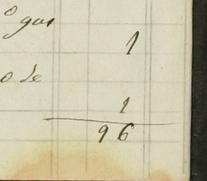 1
o de
1
96